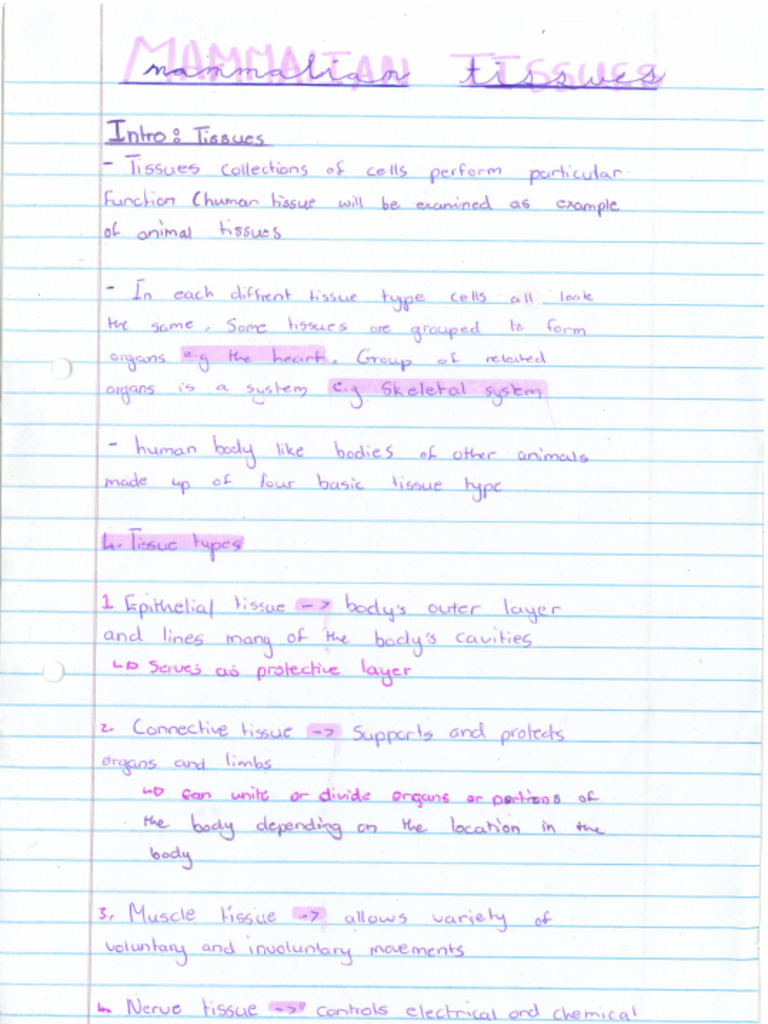 MAMMALIAN TISSUES
mammalian tissues
Intro: Tissues
- Tissues collections of cells perform particular
function (human tissue will be examined as example
of animal tissues
- In each diffrent tissue type cells all look
the same. Some tissues are grouped to form
organs e.g the heart. Group of related
organs is a system e.g Skeletal system
- human body like bodies of other animals
made up of four basic tissue type
4. Tissue types
1 Epithelial tissue -> body's outer layer
and lines many of the body's cavities
↳ Serves as protective layer
2. Connective tissue -> Supports and protects
organs and limbs
↳ can unite or divide organs or portions of
the body depending on the location in the
body
3. Muscle tissue -> allows variety of
voluntary and involuntary movements
4. Nerve tissue -> controls electrical and chemical